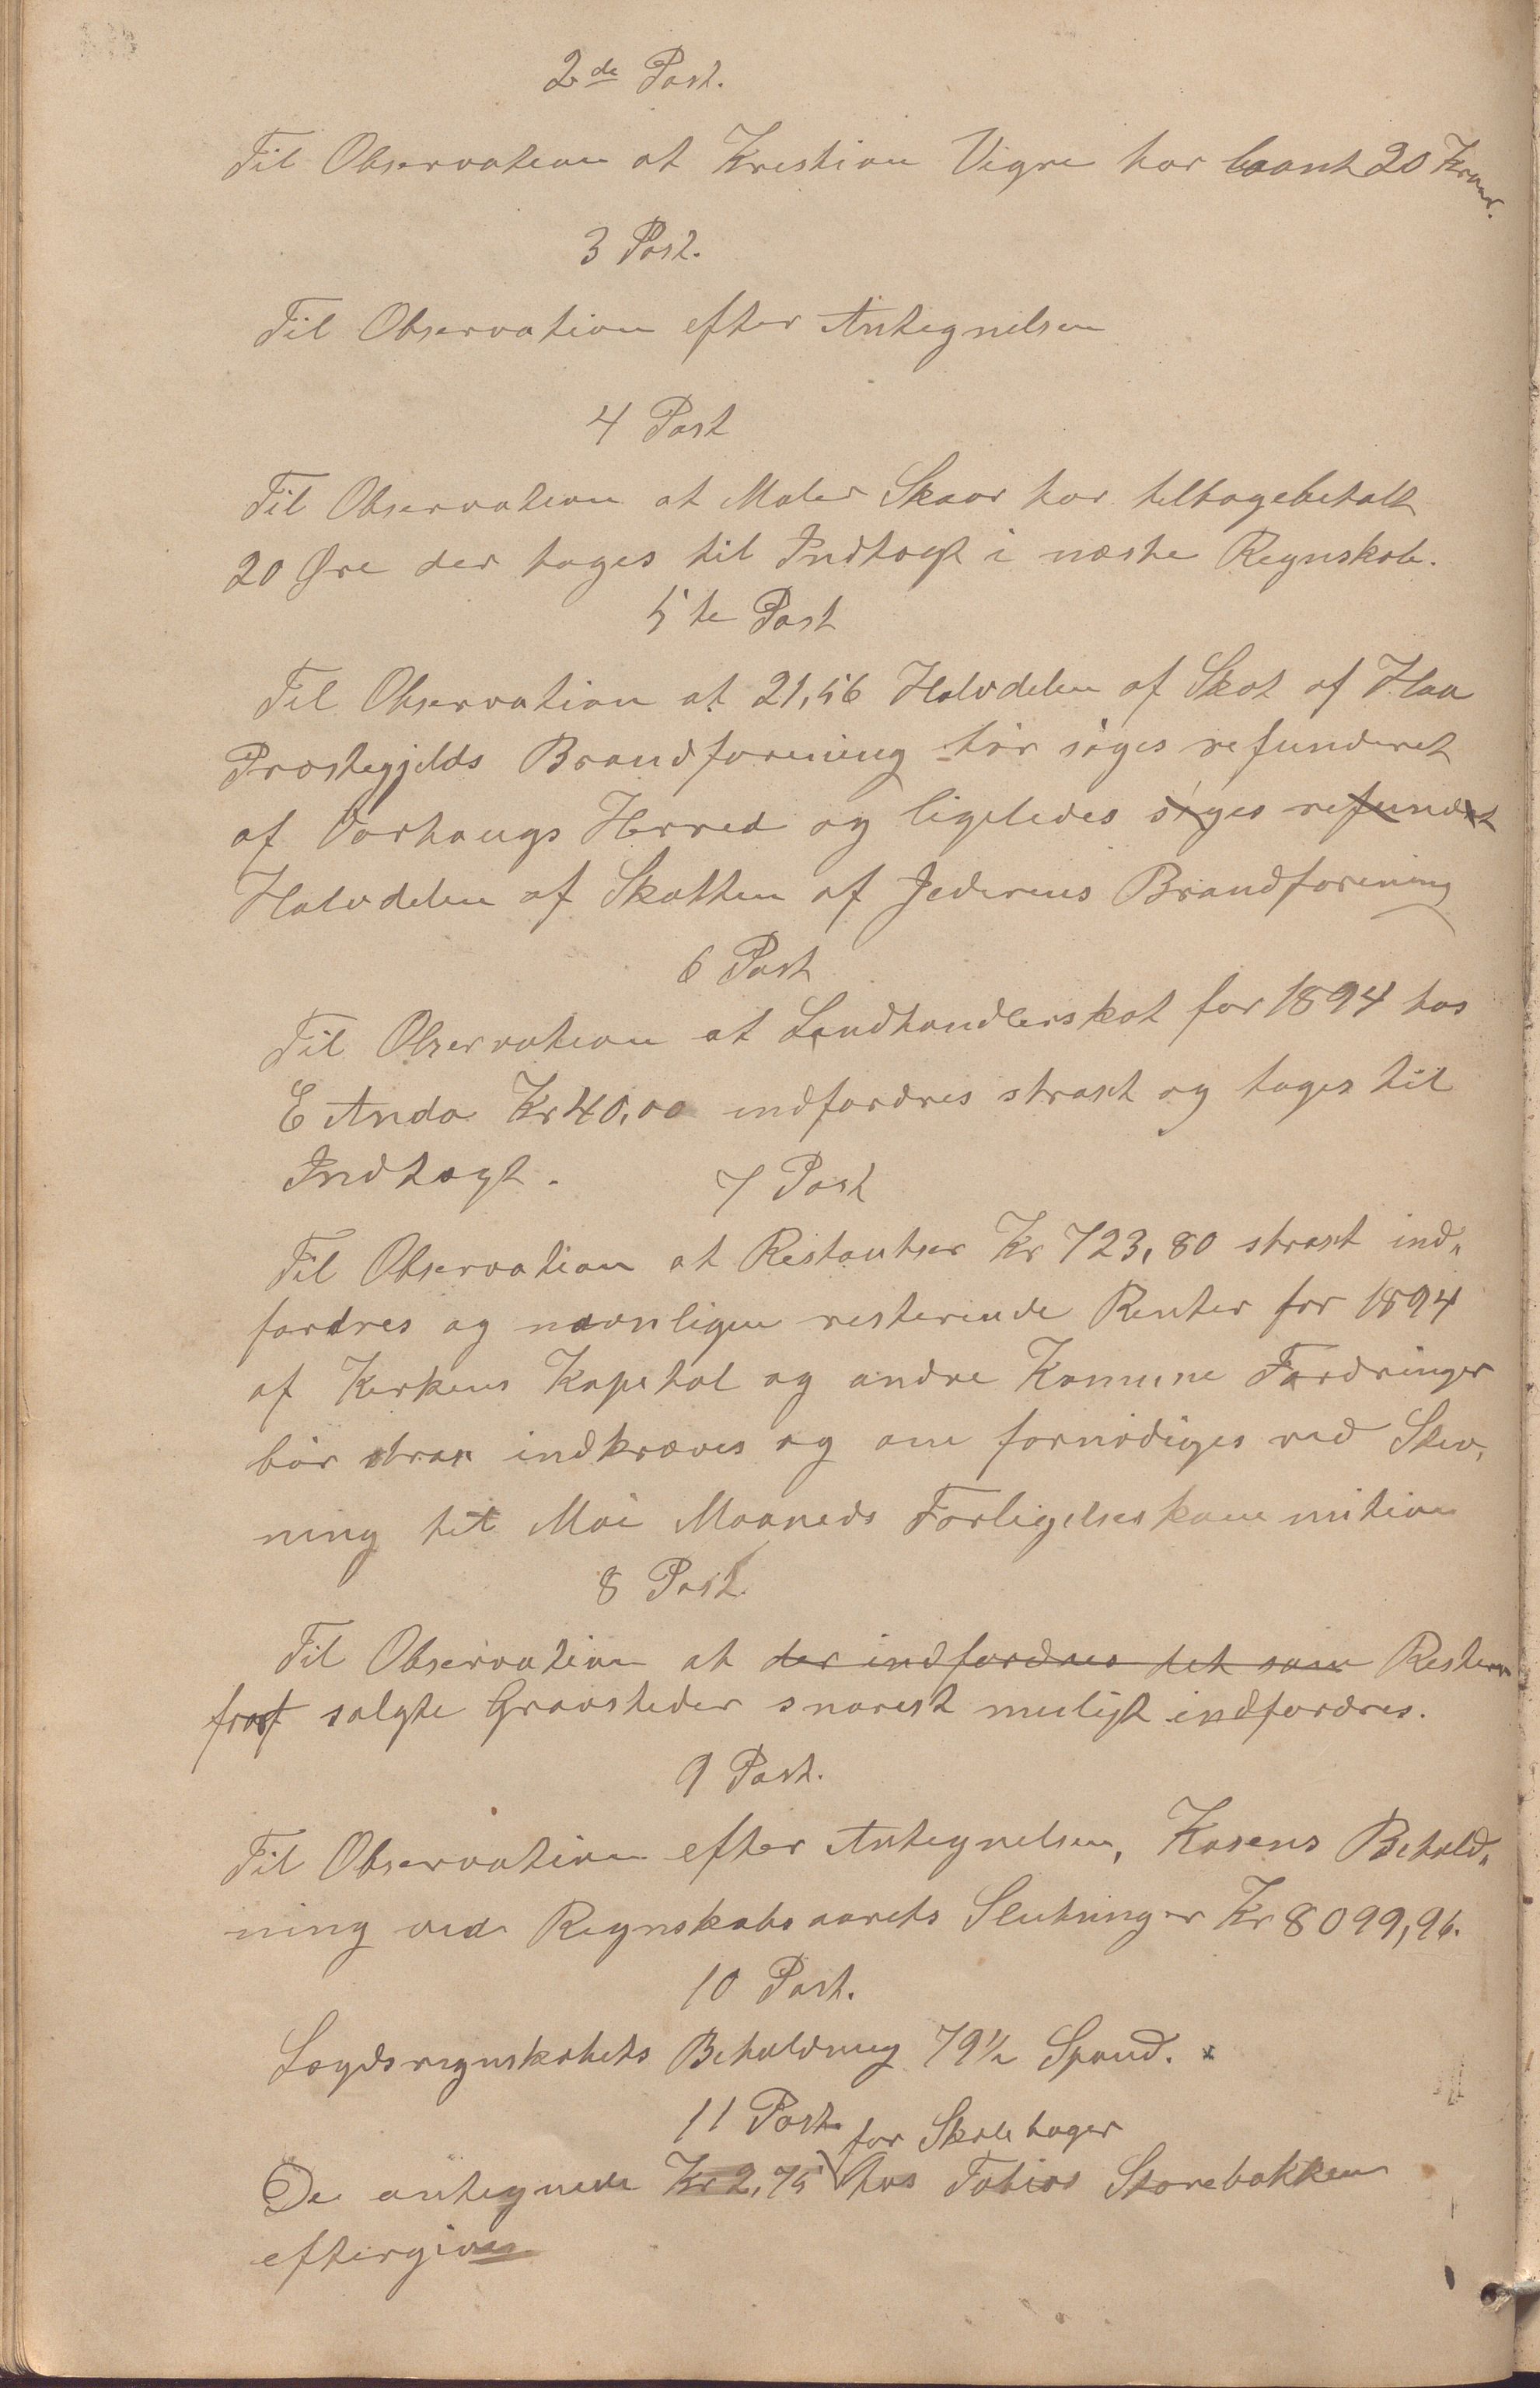 2de Post.
Til Observation at Kristian Vigre har laant 20 Kroner.
3 Post.
Til Observation efter Antegnelsen
4 Post
Til Observation at Maler Skaar har tilbagebetalt
20 Øre der tages til Indtægt i næste Regnskab.
5te Post
Til Observation at 21,56 Halvdelen af Skat af Haa
Præstegjelds Brandforening bör søges refunderet
af Varhougs Herred og ligeledes søges refundet
Halvdelen af Skatten af Jederens Brandforening
6 Post
Til Observation at Landhandlerskat for 1894 hos
E Anda Kr 40,00 indfordres straxt og tages til
Indtægt.
7 Post
Til Observation at Restantser Kr 723,80 straxt ind„
fordres og navnligen resterende Renter for 1894
af Kirkens Kapital og andre Komune Fordringer
bör strax indkræves og om fornödiges ved Stev„
ning til Mai Maaneds Forligelseskommition
8 Post
Til Observation at der indfordres det som Resterer
for salgte Gravsteder snarest muligt indfordres.
9 Post.
Til Observation efter Antegnelsen, Kasens Behold„
ning ved Regnskabsaarets Slutning er Kr 8099,96.
10 Post.
Lægdsregnskabets Beholdning 79½ Spand.
11 Post
for Skolebøger
De antegnede Kr 2,75 hos Tobias Storebakken
eftergives